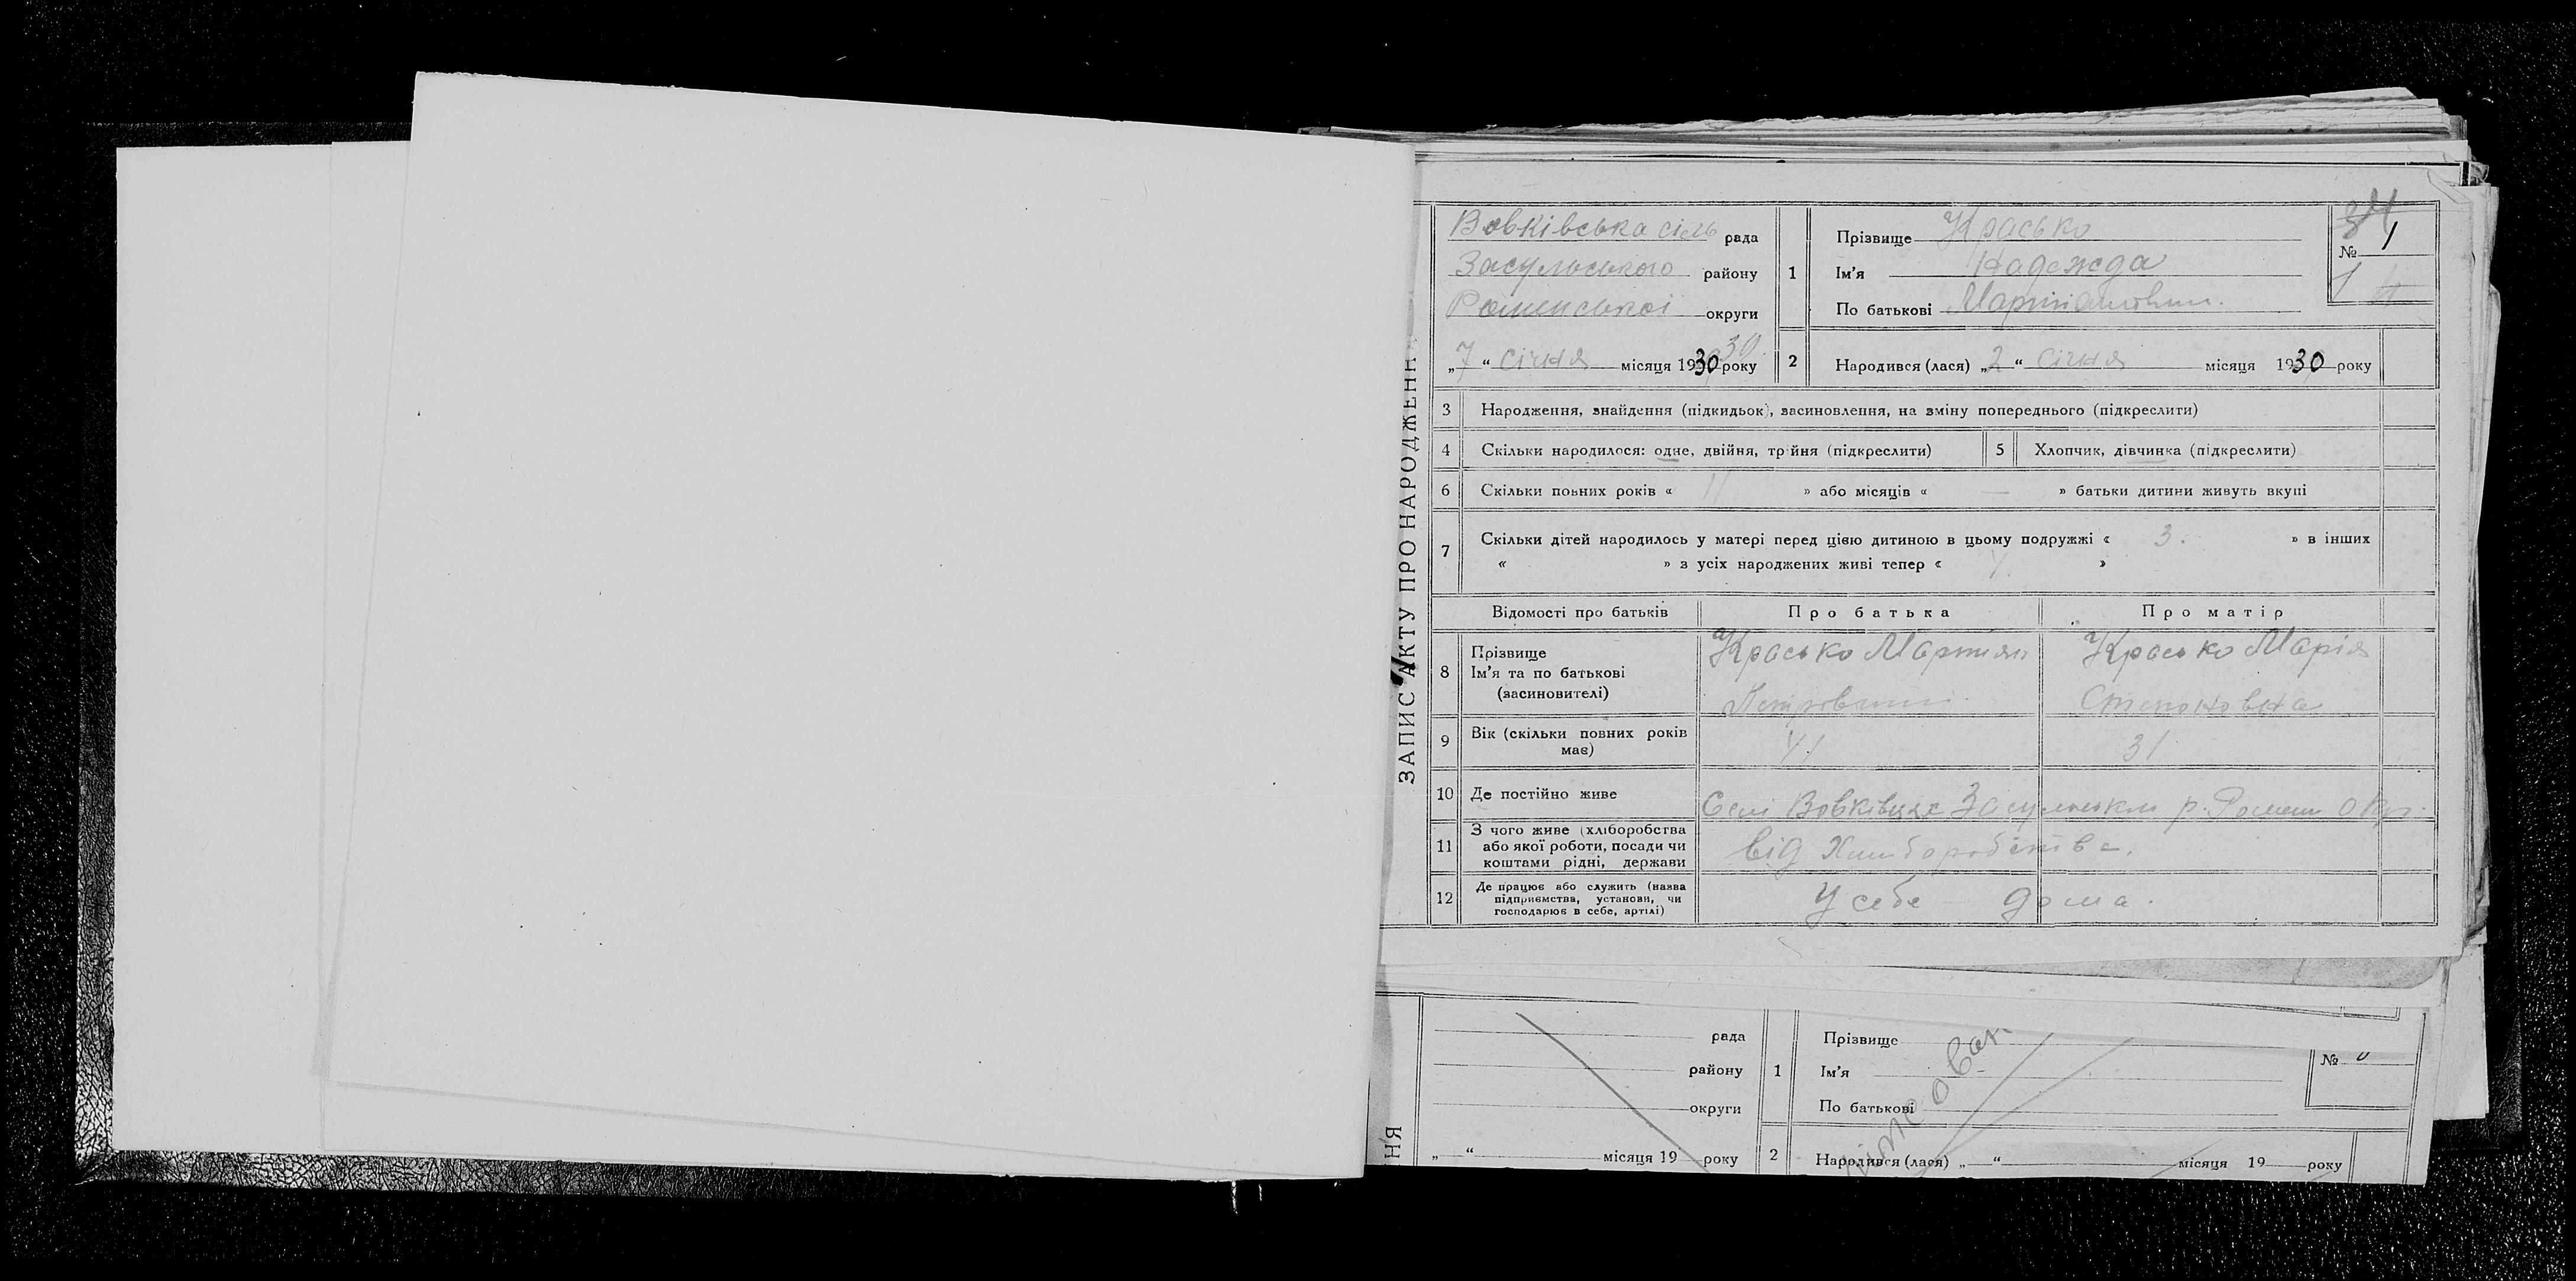 ЗАПИС АКТУ ПРО НАРОДЖЕНН
Вовківська сіль рада
Засульського району
Роменської округи
„7“ січня місяця 1930 року
1
Прізвище Красько
Ім'я Надежда
По батькові
№ 1
2
Народився (лася) „2“ січня місяця 1930 року
3 Народження, знайдення (підкидьок), засиновлення, на зміну попереднього (підкреслити)
4 Скільки народилося: одне, двійня, трійня (підкреслити)
5 Хлопчик, дівчинка (підкреслити)
6 Скільки повних років « 11 » або місяців « — » батьки дитини живуть вкупі
7 Скільки дітей народилось у матері перед цією дитиною в цьому подружжі « 3. » в інших
« » з усіх народжених живі тепер « »
Відомості про батьків Про батька Про матір
8 Прізвище
Ім'я та по батькові
(засиновителі)
Красько Мартиян
Петрович
Красько Марія
Степановна
9 Вік (скільки повних років
має)
41 31
10 Де постійно живе
Селі Вовківцях Засульськм р. Ромен окр.
11 З чого живе (хліборобства
або якої роботи, посади чи
коштами рідні, держави
від Хліборобства.
12 Де працює або служить (назва
підприємства, установи, чи
господарює в себе, артілі)
У себе дома.
НЯ
рада
району
округи
„ “ місяця 19 року
1
Прізвище
Ім'я
По батькові
№
2
Народився (лася) „ “ місяця 19 року